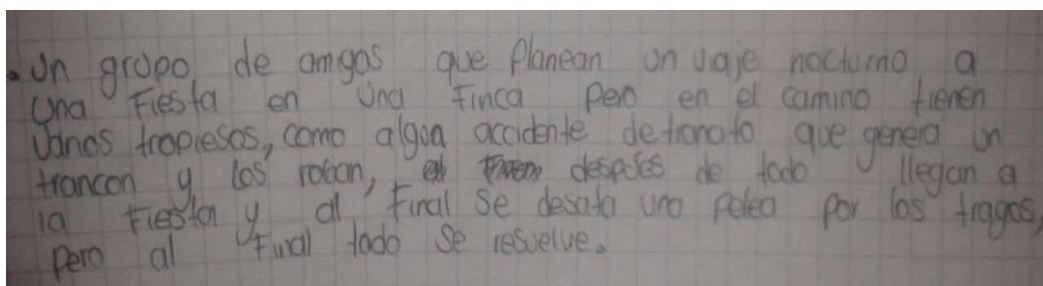 • Un grupo de amigos que planean un viaje nocturno a
una Fiesta en una Finca pero en el camino tienen
varios tropiesos, como algun accidente de trancito que genera un
trancon y los roban, despúes de todo llegan a
la Fiesta y al Final se desata una pelea por los tragos,
pero al Final todo se resuelve.